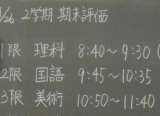 2学期 期末評価
1限 理科 8:40〜9:30
2限 国語 9:45〜10:35
3限 美術 10:50〜11:40